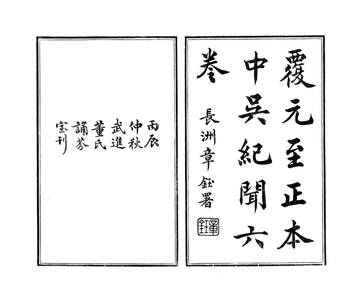 覆元至正本
中吳紀聞六
卷
長洲章鈺署
章鈺
丙辰
仲秋
武進
董氏
誦芬
室刊